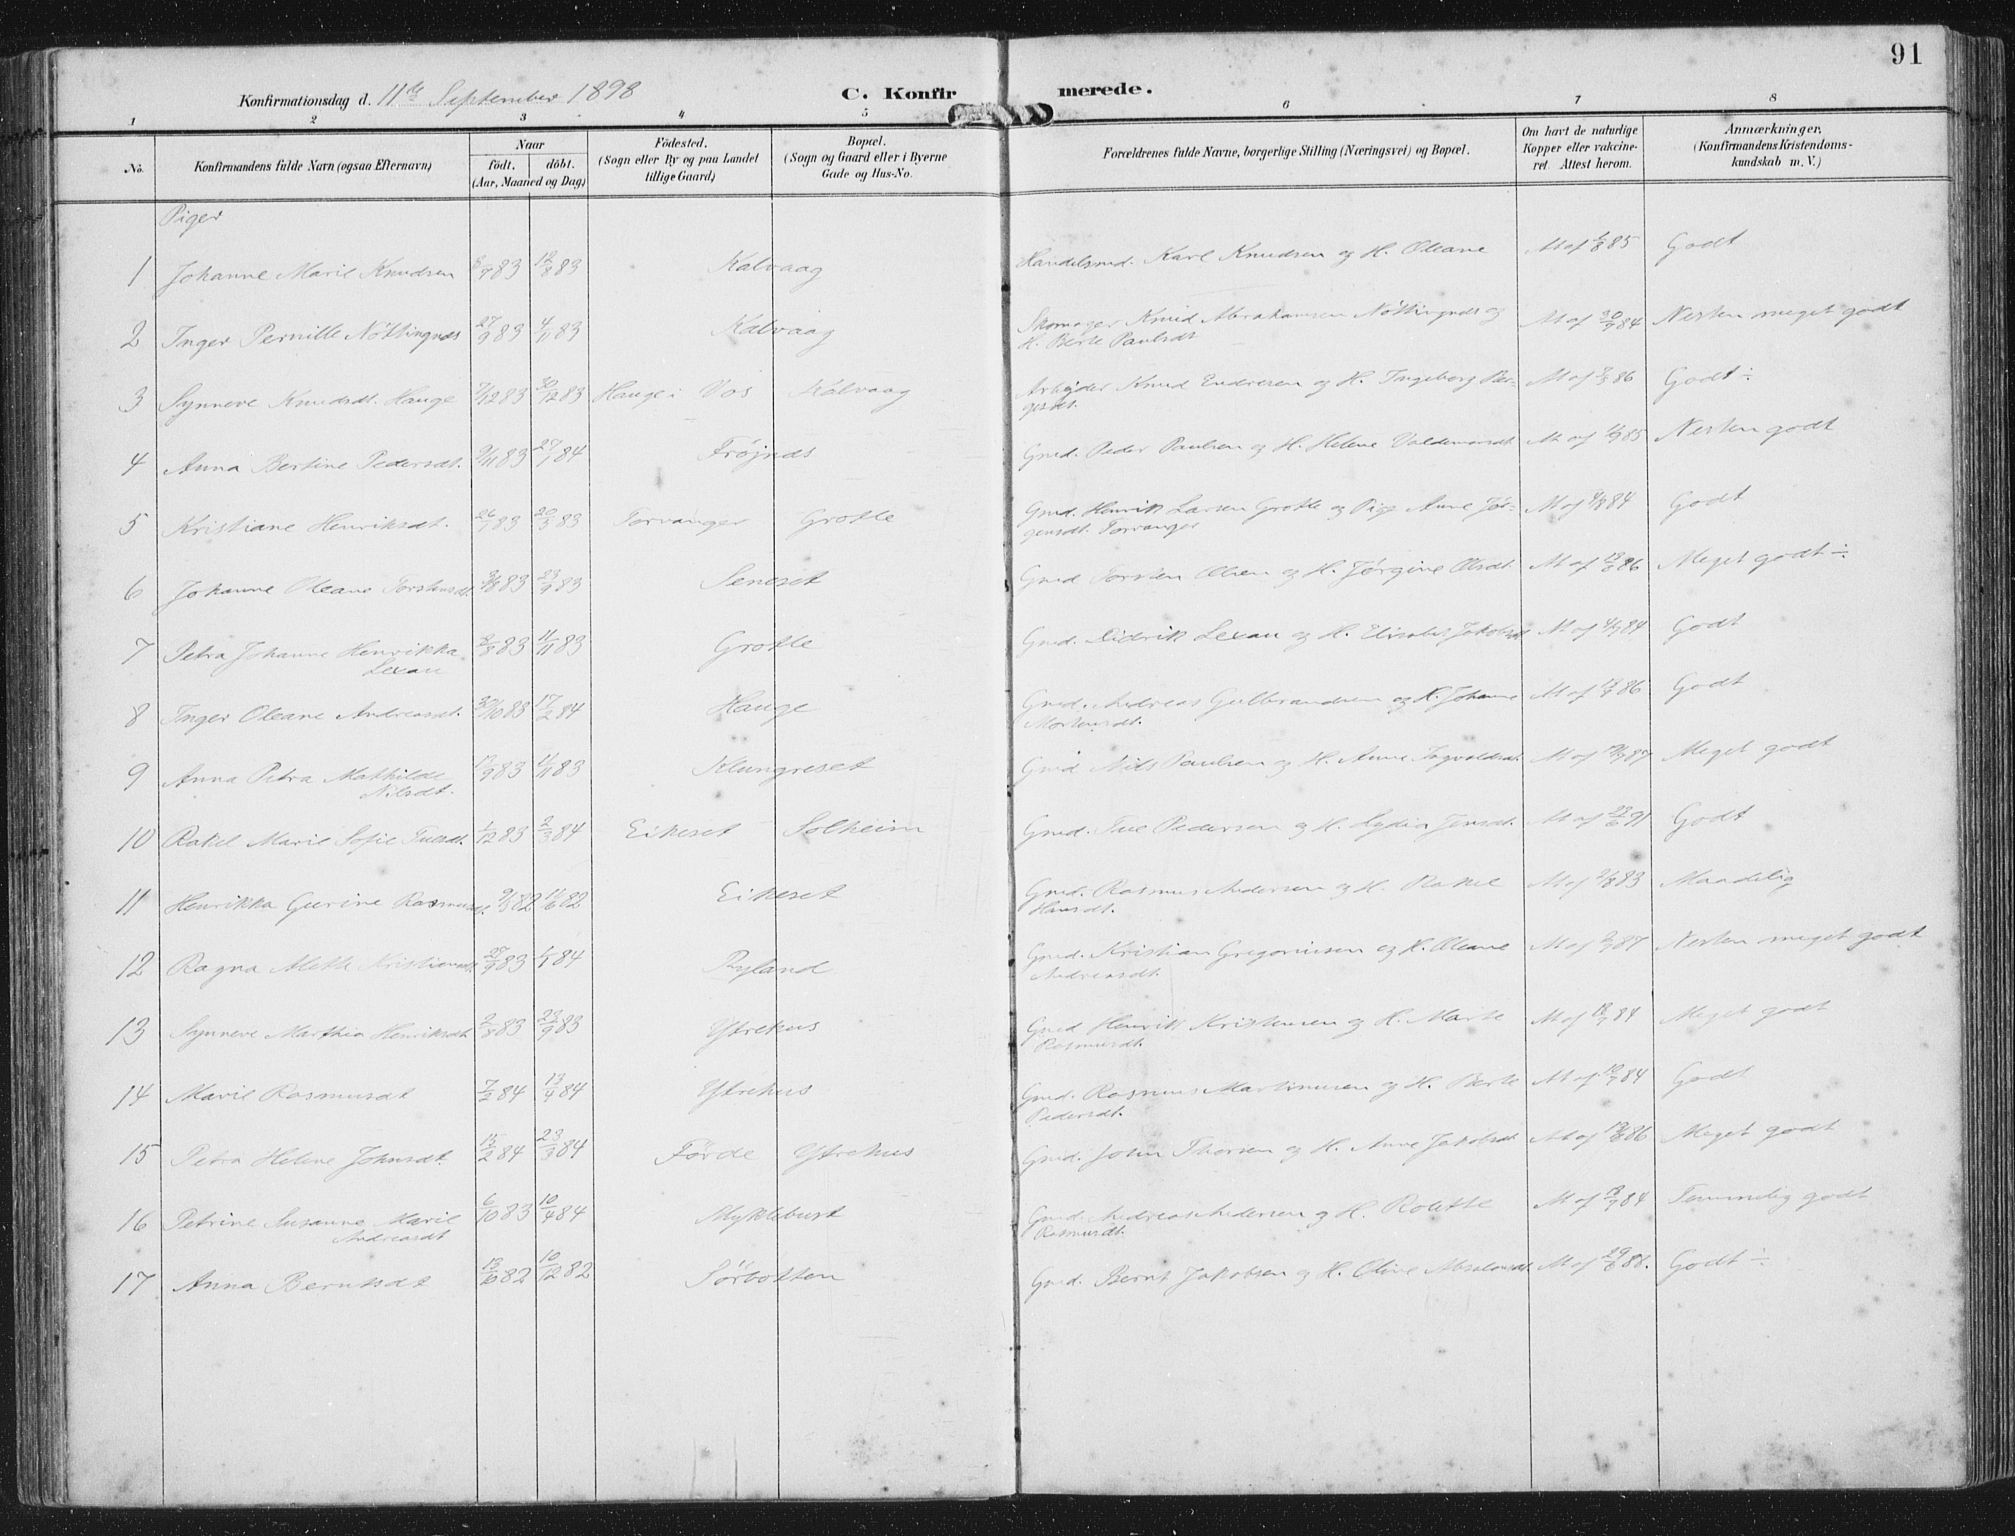 91
Konfirmationsdag d. 11te September 1898
C. Konfirmerede.
1 2 3 4 5 6 7 8
No. Konfirmandens fulde Navn (ogsaa Efternavn) Naar födt. döbt. (Aar, Maaned og Dag) Födested. (Sogn eller By og paa Landet tillige Gaard) Bopæl. (Sogn og Gaard eller i Byerne Gade og Hus-No. Forældrenes fulde Navne, borgerlige Stilling (Næringsvei) og Bopæl. Om havt de naturlige Kopper eller vakcineret. Attest herom. Anmærkninger, (Konfirmandens Kristendomskundskab m. V.)
Piger
1 Johanne Marie Knudsen 83 12/8 83 Kalvaag Handelsmd. Karl Knudsen og H. Oleane M af 1/8 85 Godt
2 Inger Pernille Nöttingnæs 27/9 83 4/11 83 Kalvaag Skomager Knud Abrahamsen Nöttingnæs og
H. Berte Paulsdt M af 84 Nesten meget godt
3 Synneve Knudsdt. Hauge 7/12 83 30/12 83 Hauge i Vos Kalvaag Arbejder Knud Endresen og H. Ingeborg Bør-
gesdt. M af 86 Godt ÷
4 Anna Bertine Pedersdt. 9/11 83 27/1 84 Fröjnæs Gmd. Peder Paulsen og H. Helene Valdemarsdt M af 85 Nesten godt
5 Kristiane Henriksdt. 26/1 83 20/3 83 Torvanger Grotle Gmd. Henrik Larsen Grotle og Pige Anne Jör-
gensdt. Torvanger M af 84 Godt
6 Johanne Oleane Torstensdt 83 23/9 83 Seneset Gmd Torsten Olsen og H. Jörgine Olsdt M af 86 Meget godt ÷
7 Petra Johanne Henrikka
Lexau 8/8 83 11/11 83 Grotle Gmd. Didrik Lexau og H. Elisabet Jakobsdt M af 84 Godt
8 Inger Oleane Andreasdt. 30/10 83 17/2 84 Hauge Gmd. Andreas Gulbrandsen og H. Johanne
Mortensdt. M af 86 Godt
9 Anna Petra Mathilde
Nilsdt. 9 83 11 83 Klungreset Gmd Nils Paulsen og H. Anne Ingvaldsdt. M af 87 Meget godt
10 Rakel Marie Sofie Tuesdt. 1/12 83 2/3 84 Eikeset Solheim Gmd. Tue Pedersen og H. Lydia Jensdt. M af 23/6 91 Godt
11 Henrikka Gurine Rasmusdt. 82 11/6 82 Eikeset Gmd. Rasmus Andersen og H. Rakel
Hansdt. M af 83 Maadelig
12 Ragna Alette Kristiansdt. 27/9 83 84 Ryland Gmd. Kristian Gregoriusen og H. Oleane
Andreasdt. M af 87 Nesten meget godt
13 Synneve Marthea Henriksdt 2/8 83 23/9 83 Ytrehus Gmd Henrik Kristensen og H. Marte
Rasmusdt. M af 84 Meget godt
14 Marie Rasmusdt 7/2 84 13/4 84 Ytrehus Gmd. Rasmus Martinusen og H. Berte
Pedersdt. M af 84 Godt
15 Petra Helene Johnsdt. 15/2 84 23/3 84 Förde Ytrehus Gmd. John Thorsen og H. Anne Jakobsdt M af 86 Meget godt
16 Petrine Susanne Marie
Andreasdt 6/10 83 10/4 84 Myklebust Gmd. Andreas Andersen og H. Rolette
Rasmusdt. M af 84 Temmelig godt
17 Anna Berntsdt 13/10 82 10/12 82 Sörbotten Gmd. Bernt Jakobsen og H. Oline Absalonsdt M af 29/6 88. Godt ÷